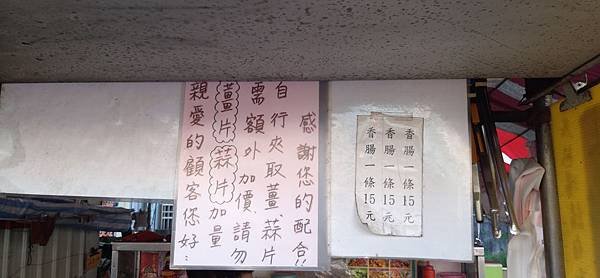 親愛的顧客您好:
薑片 蒜片加量
需額外加價、請勿
自行夾取薑、蒜片
感謝您的配合!!
香腸一條15元
香腸一條15元
香腸一條15元